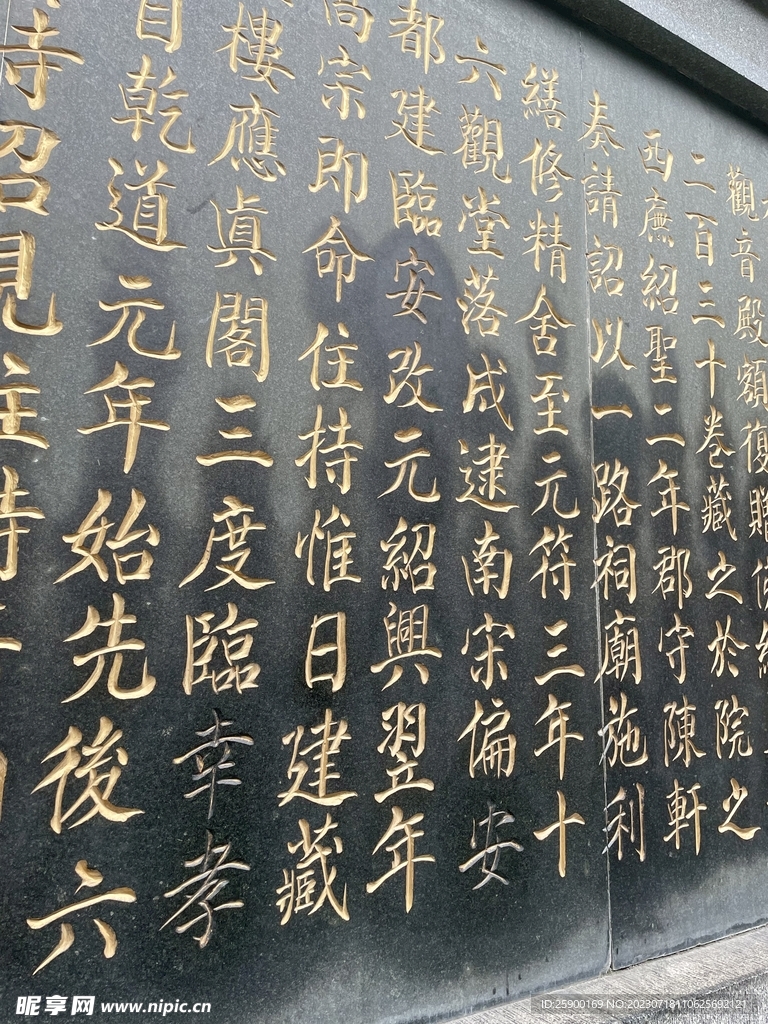 觀音殿額復贈
二百三十卷藏之於院之
西廡紹聖二年郡守陳軒
奏請詔以一路祠廟施利
繕修精舍至元符三年十
六觀堂落成逮南宋偏安
都建臨安改元紹興翌年
高宗即命住持惟日建藏
樓應真閣三度臨幸孝
自乾道元年始先後六
寺召見主持
昵享网 www.nipic.cn
ID:25900169 NO:20230718110625692121